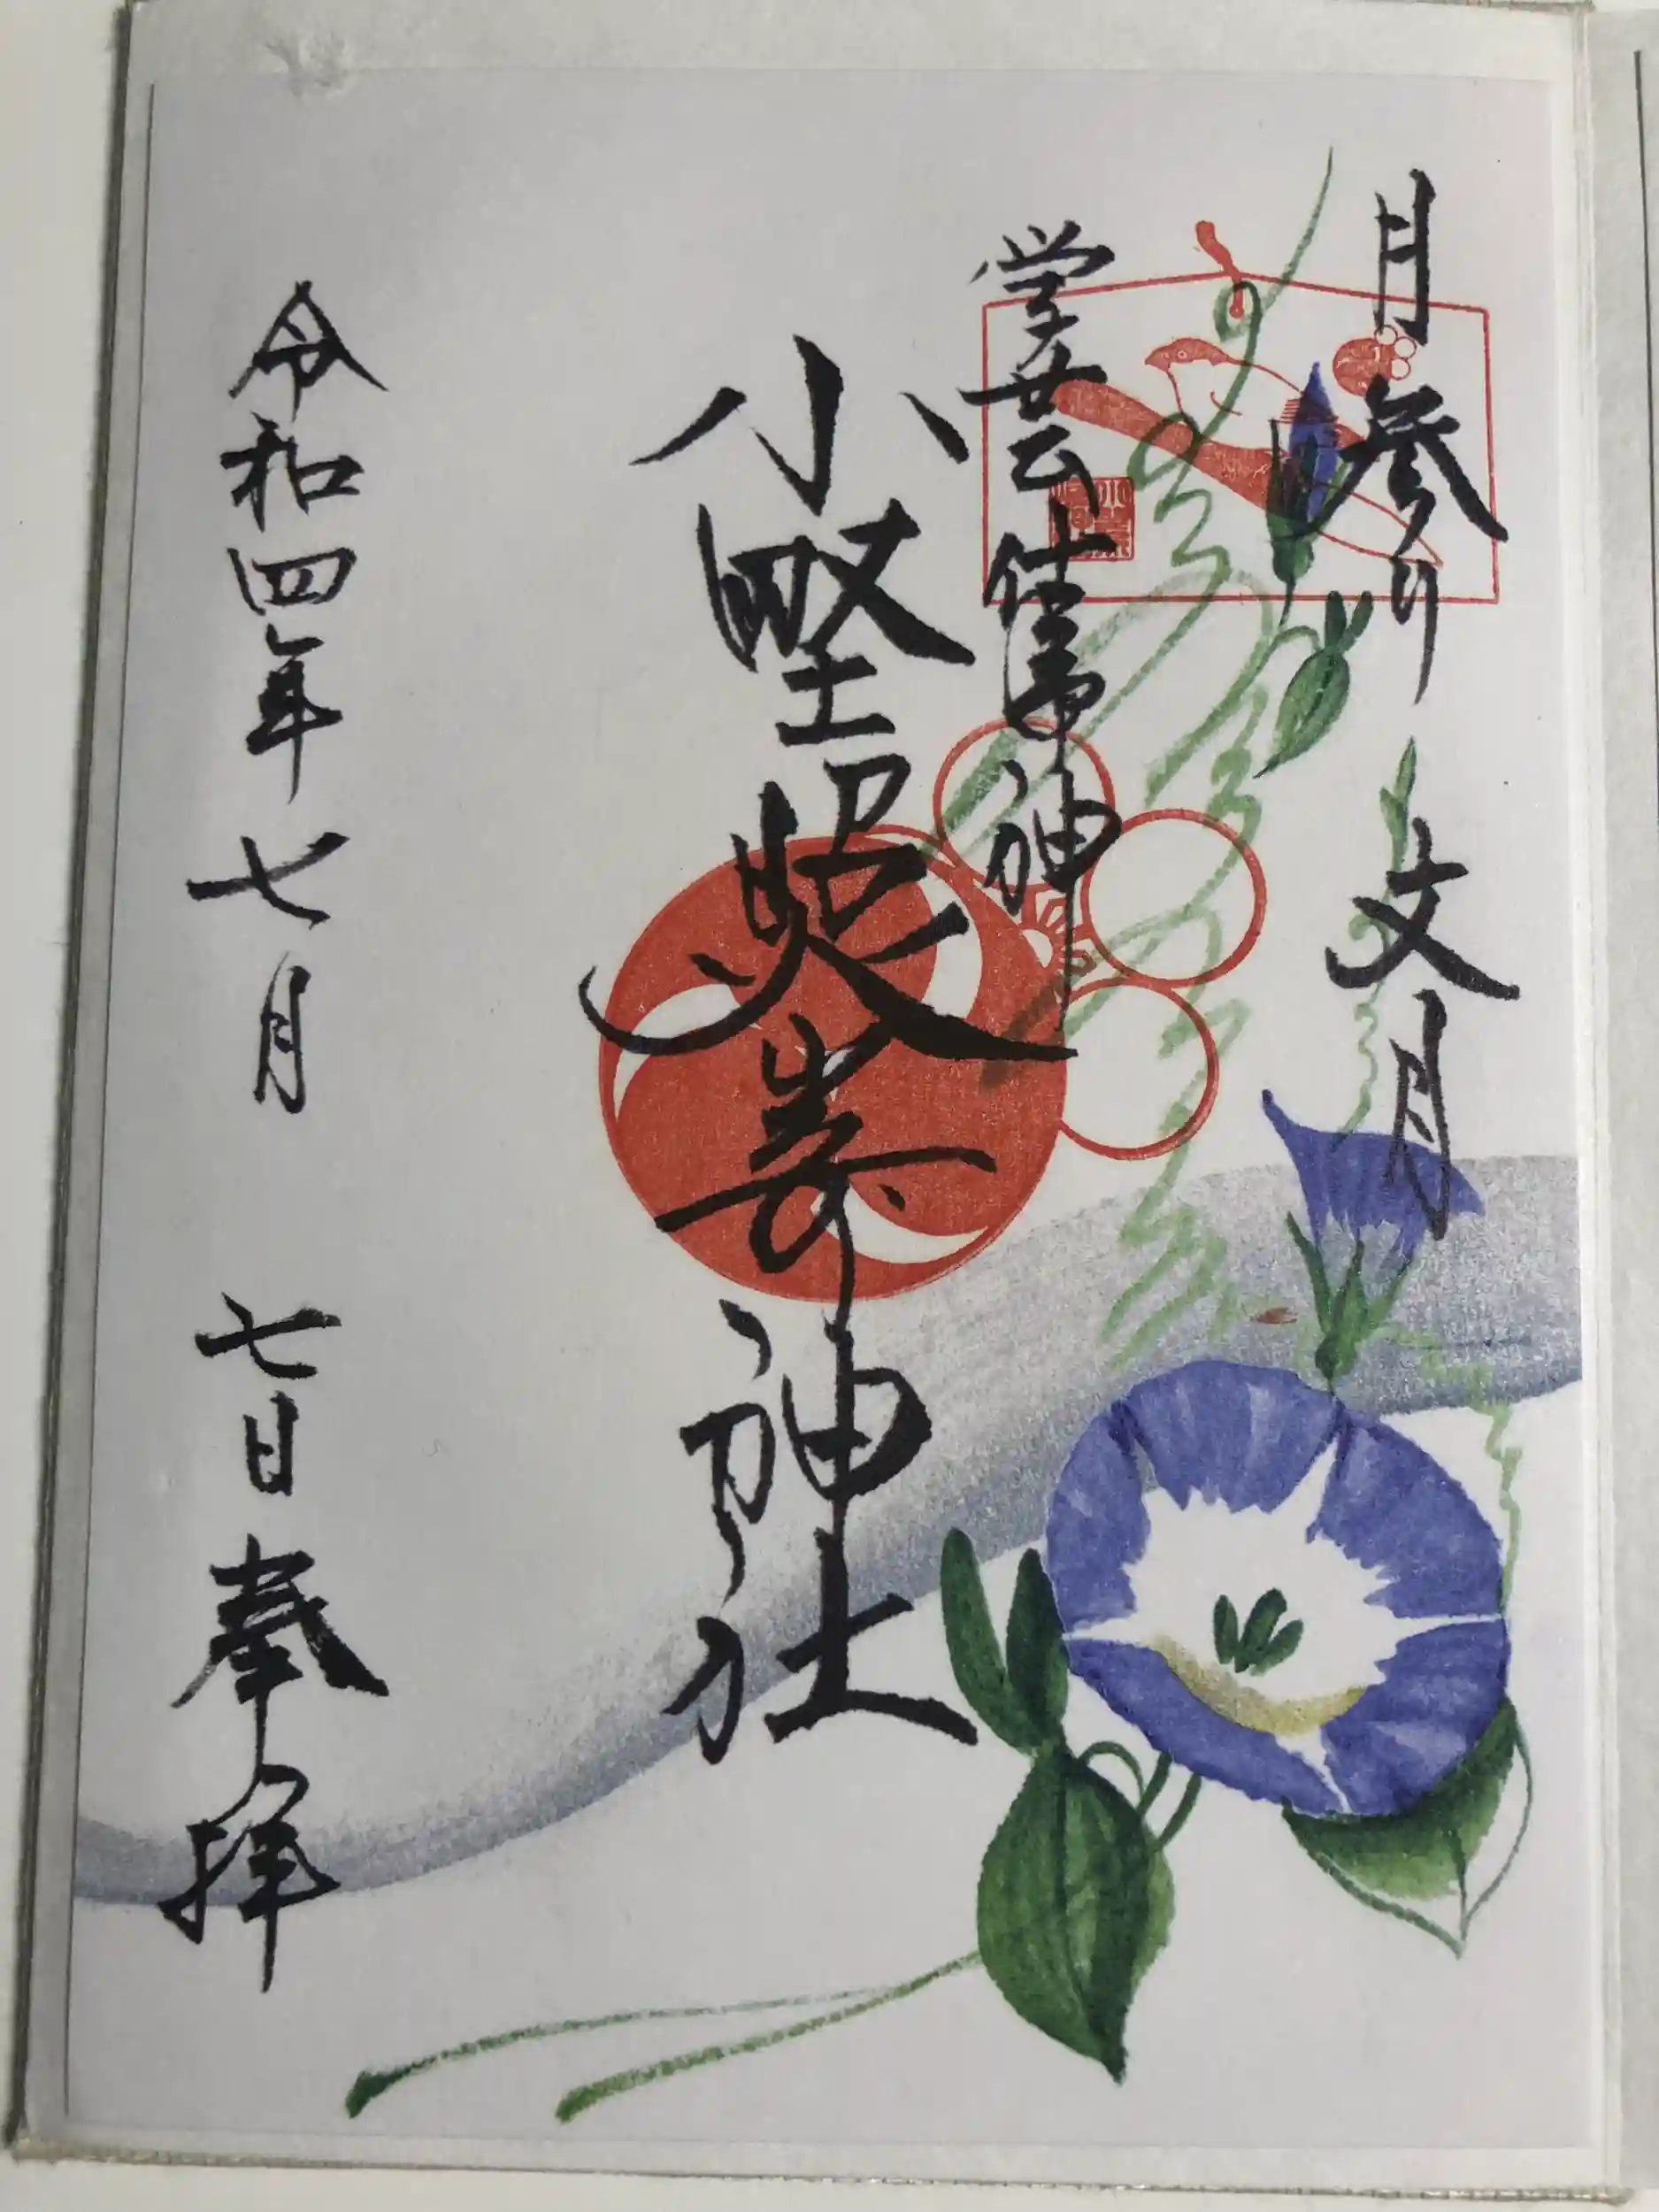 月参り 文月
学芸仕事神
小野照崎神社
令和四年七月 七日奉拝